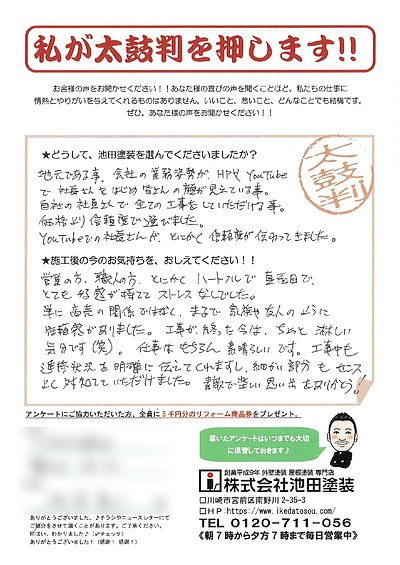 私が太鼓判を押します!!
お客様の声をお聞かせください！！あなた様の喜びの声を聞くことほど、私たちの仕事に
情熱とやりがいを与えてくれるものはありません。いいこと、悪いこと、どんなことでも結構です。
ぜひ、あなた様の声をお聞かせください！！
太鼓判
★どうして、池田塗装を選んでくださいましたか？
地元である事、会社の業務姿勢が、HPや YouTube
で 社長さんをはじめ 皆さんの顔が見えている事。
自社の社員さんで 全ての工事をしていただける事。
価格より信頼度で選びました。
YouTubeでの社長さんが、とにかく 信頼感が伝わってきました。
★施工後の今のお気持ちを、おしえてください！！
営業の方、職人の方、とにかく ハートフルで 真面目で、
とても 好感が持てて ストレス なしでした。
単に 商売の関係ではなく、まるで 家族や友人のように
信頼感がありました。工事が終った今は、ちょっと 淋しい
気分です(笑)。仕事はもちろん 素晴らしいです。工事中も
進捗状況を 明確に 伝えてくれますし、細かい部分も センス
よく 対処していただけました。素敵で楽しい 思い出をありがとう!
アンケートにご協力いただいた方、全員に５千円分のリフォーム商品券をプレゼント。
届いたアンケートはいつまでも大切
に保管しております♪
創業平成9年 外壁塗装 屋根塗装 専門店
株式会社池田塗装
□川崎市宮前区南野川 2-35-3
□ＨＰ:https://www.ikedatosou.com/
TEL 0120-711-056
《朝７時から夕方７時まで毎日営業中》
ありがとうございました。♪チラシやニュースレターにて
ご紹介をさせて頂くことがあります。ご了承ください。
ＯＫはい、わかりました♪（✔チェック）
ありがとうございました！（感謝！感謝！）